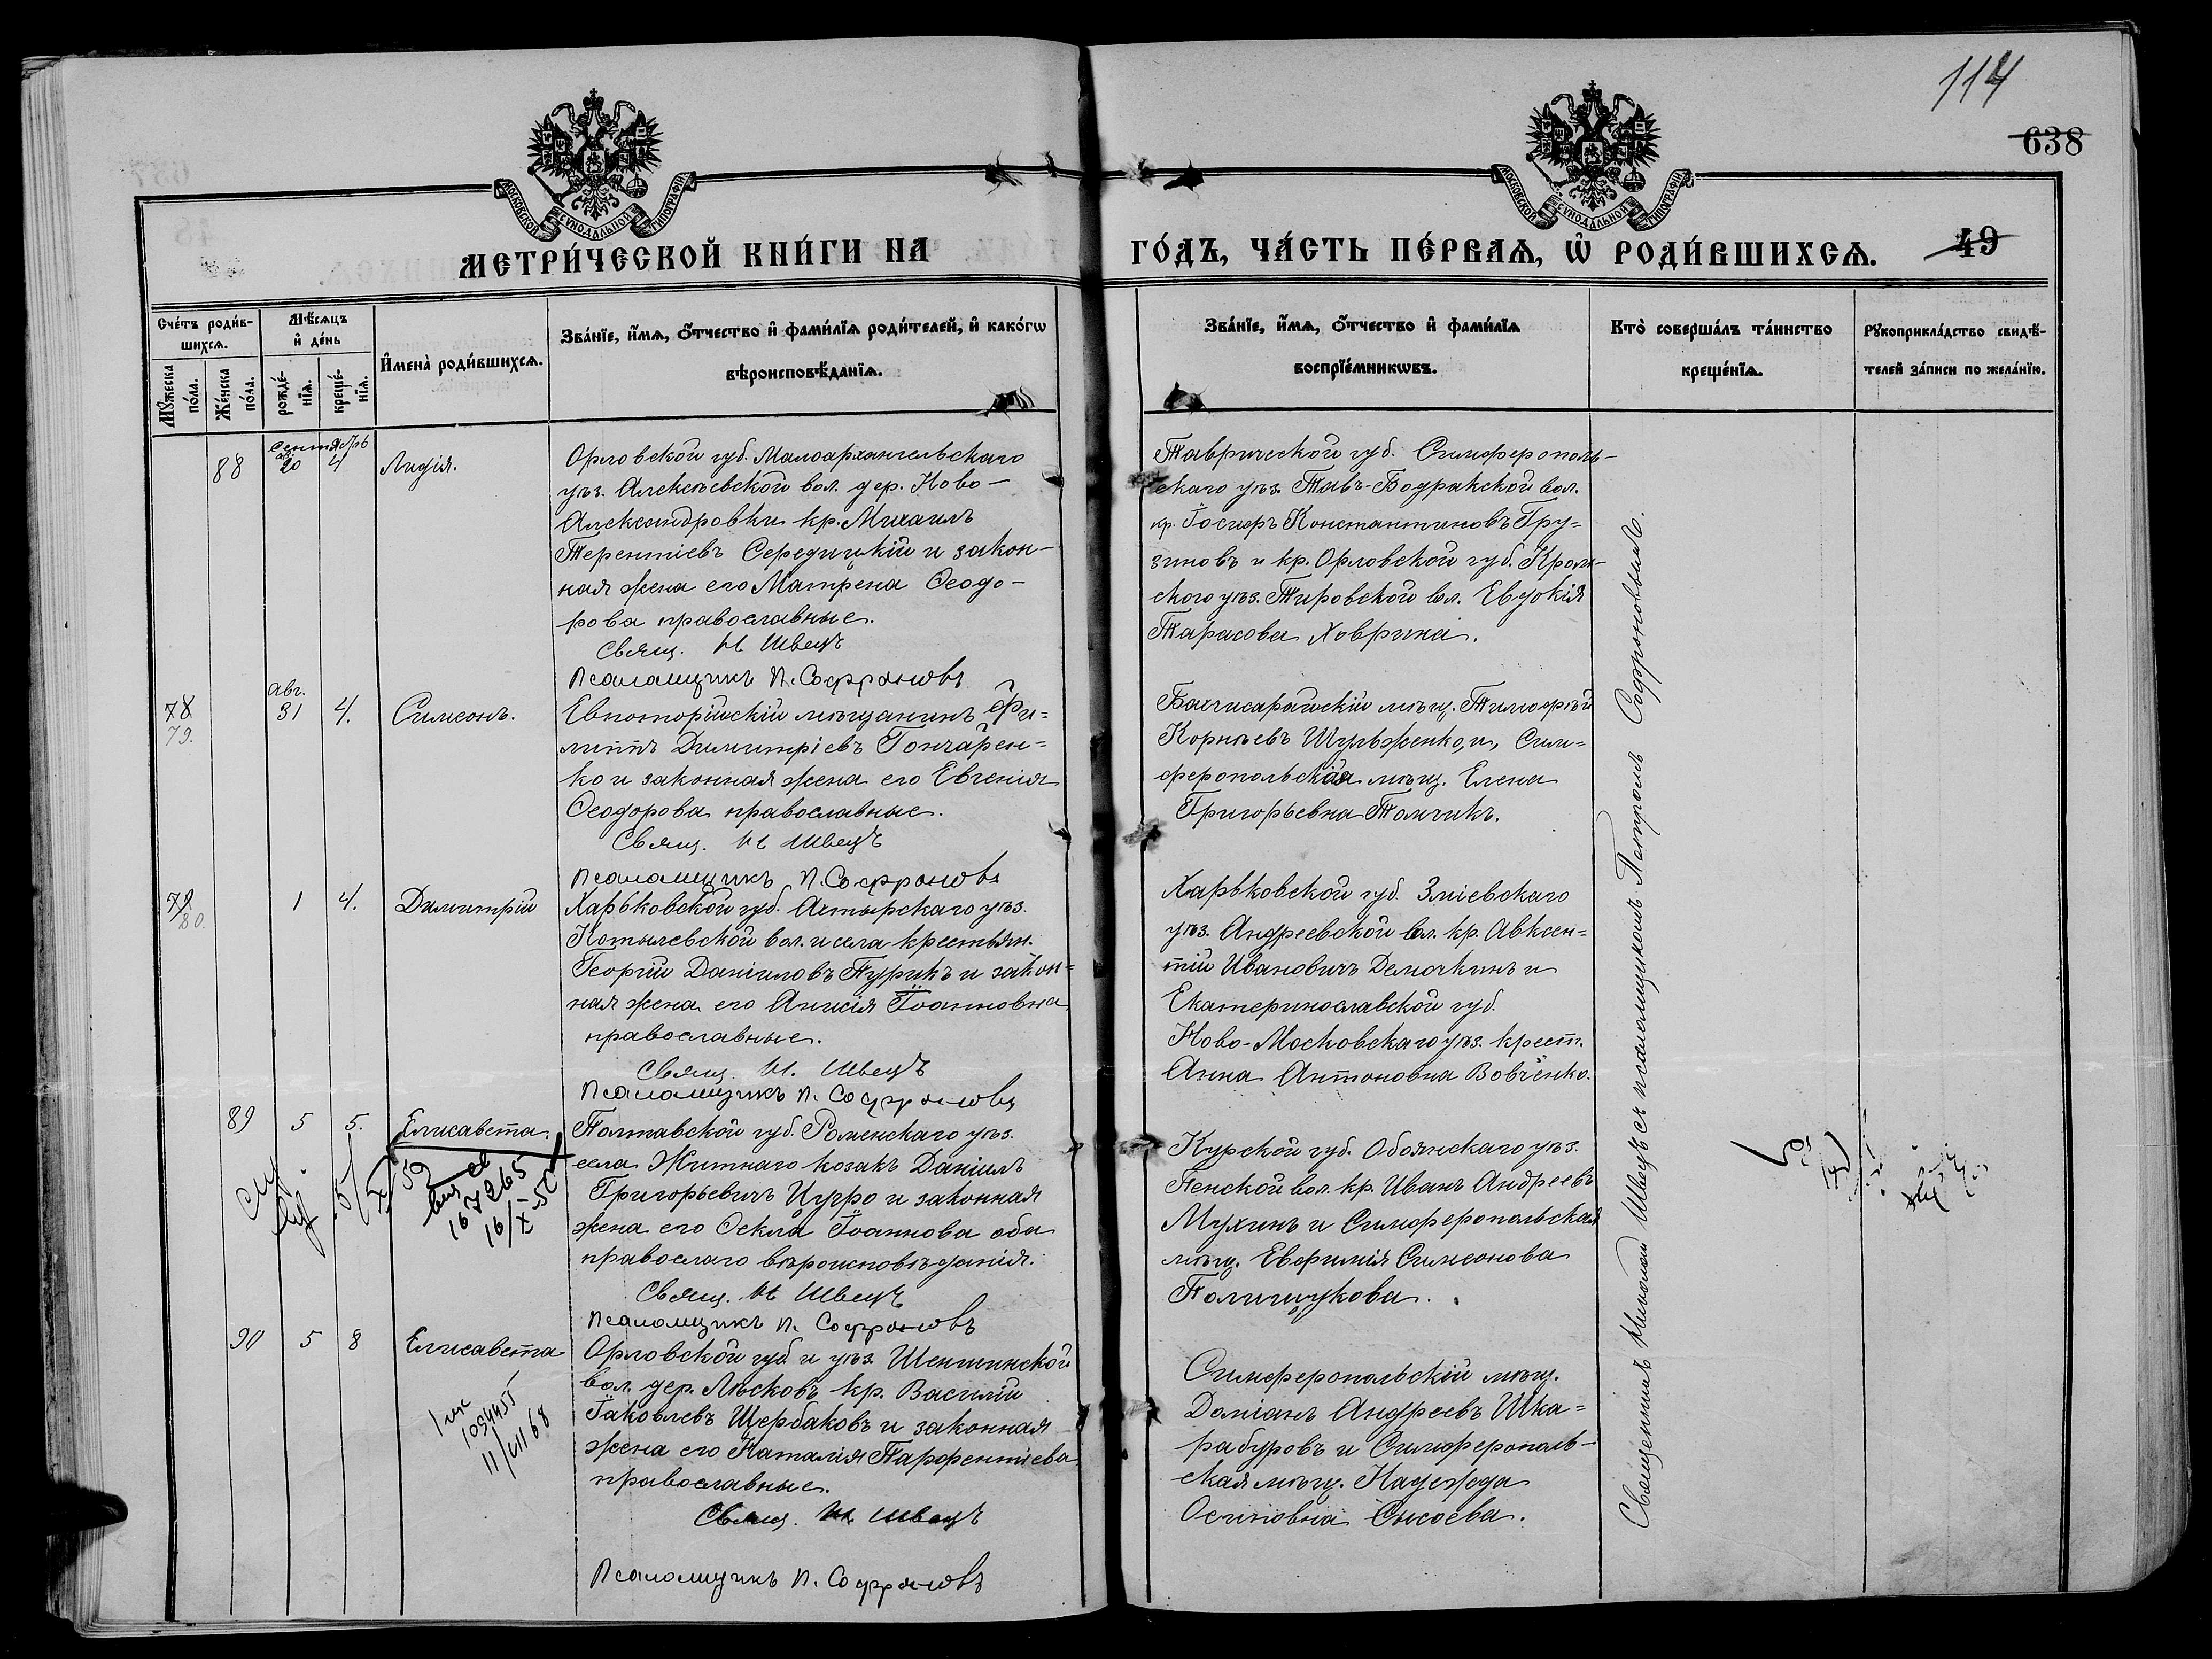 114
638
МОСКОВСКОЙ СѴНОДАЛЬНОЙ ТИПОГРАФІИ
МОСКОВСКОЙ СѴНОДАЛЬНОЙ ТИПОГРАФІИ
МЕТРИ́ЧЕСКОЙ КНИ́ГИ НА
ГО́ДЪ, ЧА́СТЬ ПЕ́РВАѦ, Ѽ РОДИ́ВШИХСѦ.
49
Сче́тъ роди́в-
шихсѧ.
Мꙋ́жеска по́ла.
Же́нска по́ла.
Мѣ́сѧцъ
и҆ де́нь
рожде́-нїѧ.
креще́-нїѧ.
И҆мена̀ роди́вшихсѧ.
Зва́нїе, и҆́мѧ, ѻ҆́тчество и҆ фами́лїѧ роди́телей, и҆ како́гѡ
вѣроисповѣ́данїѧ.
Зва́нїе, и҆́мѧ, ѻ҆́тчество и҆ фами́лїѧ
воспрїе́мникѡвъ.
Кто̀ соверша́лъ та́инство
креще́нїѧ.
Рꙋкоприкла́дство свидѣ́-
телей за́писи по жела́нїю.
88
Сентябрь
20
4
Лидія.
Орловской губ. Малоархангельскаго
уѣз. Алексѣевской вол. дер. Ново-
Александровки кр. Михаилъ
Терентіевъ Середицкій и закон-
ная жена его Матрена Ѳеодо-
рова православные.
Свящ. Н Швецъ
Псаломщикъ П. Софроновъ
Таврической губ. Симферополь-
скаго уѣз. Тавъ-Бодракской вол.
кр. Іосифъ Константиновъ Гру-
зиновъ и кр. Орловской губ. Кром-
ского уѣз. Тировской вол. Евдокія
Тарасова Ховрина.
78
79.
Авг.
31
4.
Симеонъ.
Евпаторійскій мѣщанинъ Фи-
липпъ Димитріевъ Гончарен-
ко и законная жена его Евгенія
Ѳеодорова православные.
Свящ. Н Швецъ
Псаломщикъ П. Софроновъ
Бахчисарайскій мѣщ. Тимофѣй
Корнѣевъ Шульженко, и, Сим-
феропольская мѣщ. Елена
Григорьевна Томчикъ.
79.
80.
1
4.
Димитрій
Харьковской губ. Ахтырскаго уѣз.
Котылевской вол. и села крестьян.
Георгій Даніиловъ Пурикъ и закон-
ная жена его Анисія Іоанновна
православные.
Свящ. Н. Швецъ
Псаломщикъ П. Софроновъ
Харьковской губ. Зміевскаго
уѣз. Андреевской вол. кр. Авксен-
тій Ивановичъ Демочкинъ и
Екатеринославской губ.
Ново-Московскаго уѣз. крест.
Анна Антоновна Вовченко.
89
5
5.
Елисавета.
Полтавской губ. Роменскаго уѣз.
села Житнаго козакъ Даніилъ
Григорьевичъ Цугро и законная
жена его Ѳекла Іоаннова оба
православо вѣроисповѣданія.
Свящ. Н Швецъ
Псаломщикъ П. Софроновъ
167265
16/X-50
Курской губ. Обоянскаго уѣз.
Пенской вол. кр. Иванъ Андреевъ
Мухинъ и Симферопольская
мѣщ. Евфимія Симеонова
Полищукова.
90
5
8
Елисавета
1094455
11/VII 68
Орловской губ. и уѣз. Шеншинской
вол. дер. Лѣсковъ кр. Василій
Іаковлевъ Щербаковъ и законная
жена его Наталія Парфентіева
православные.
Свящ. Н Швецъ
Псаломщикъ П. Софроновъ
Симферопольскій мѣщ.
Доміанъ Андреевъ Шка-
рабуровъ и Симферополь-
ская мѣщ. Надежда
Осиповна Сысоева.
Священникъ Николай Швецъ съ псаломщикомъ Петромъ Софроновымъ.